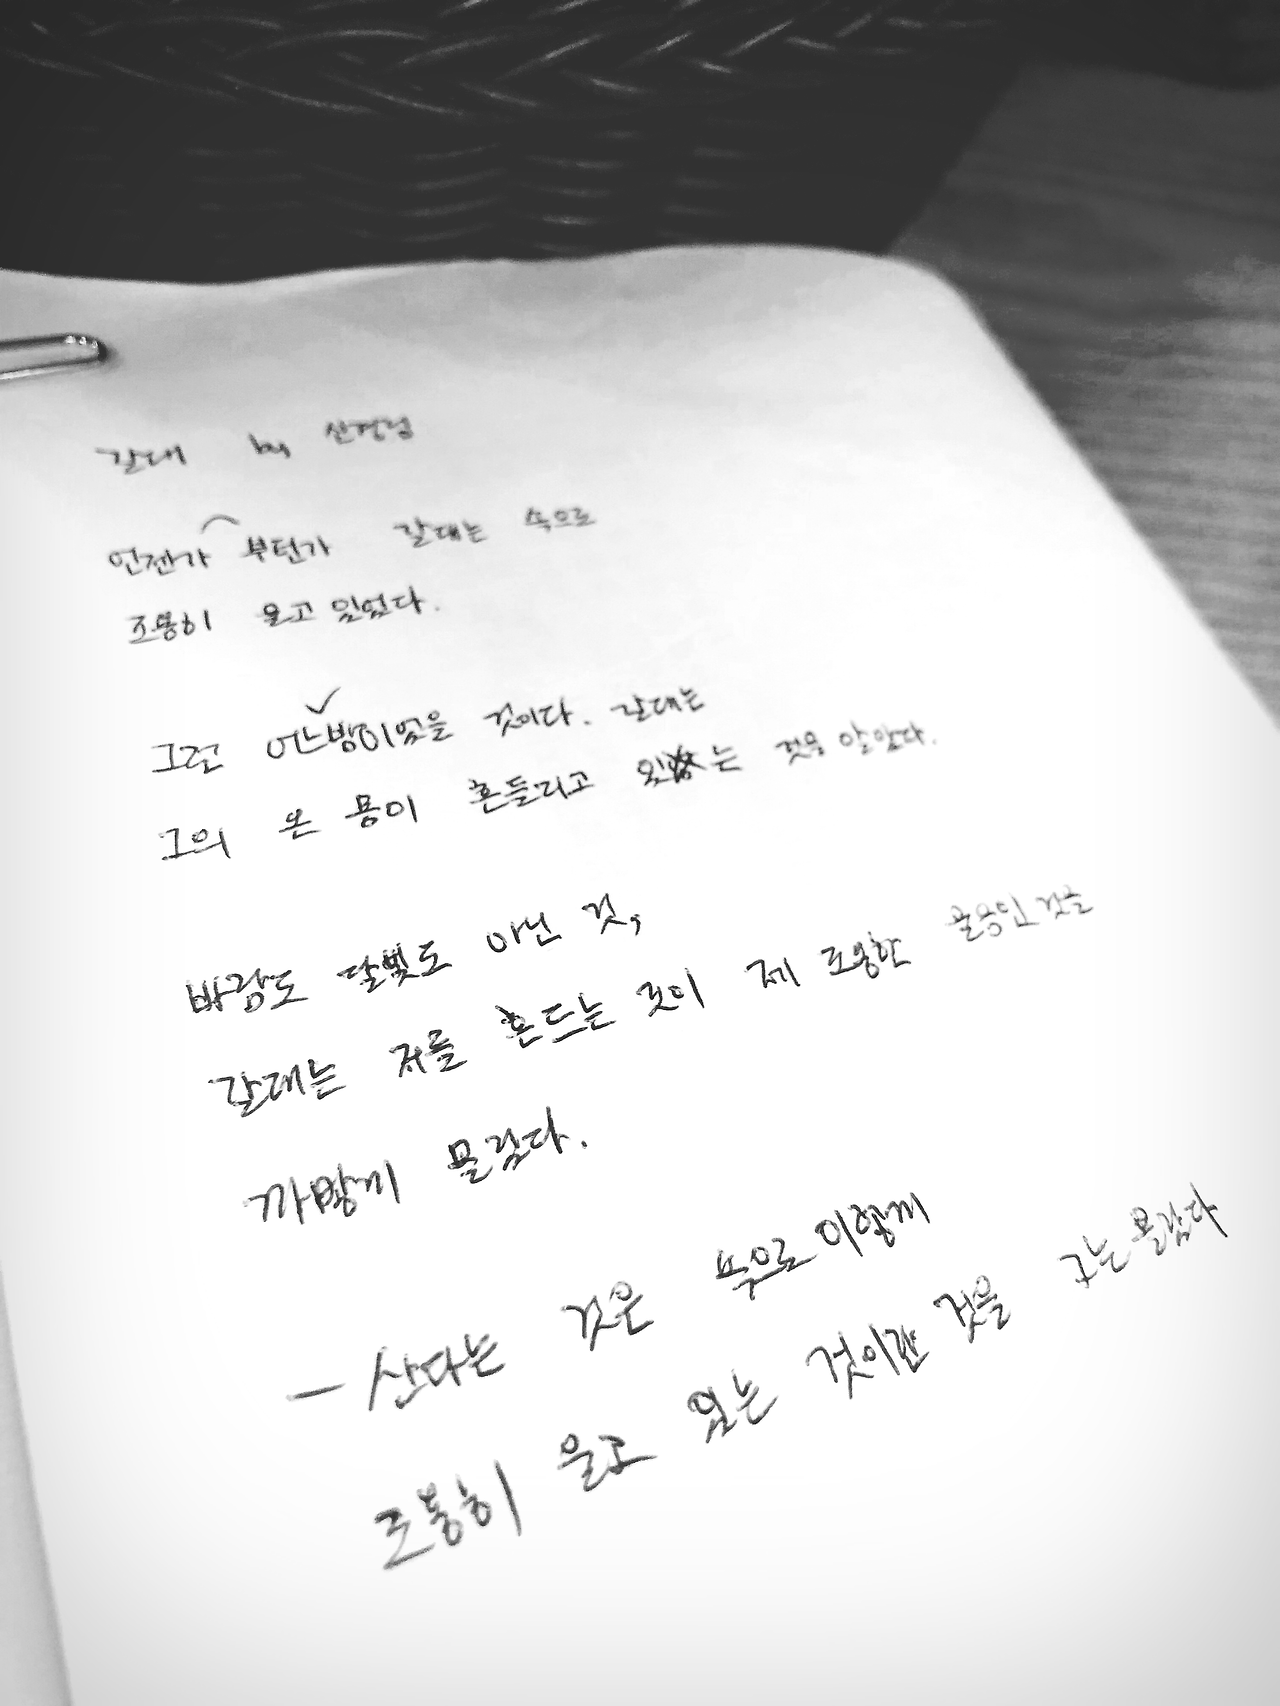 갈대 by 신경림
언젠가 부턴가 갈대는 속으로
조용히 울고 있었다.
그런 어느밤이었을 것이다. 갈대는
그의 온 몸이 흔들리고 있는 것을 알았다.
바람도 달빛도 아닌 것,
갈대는 저를 흔드는 것이 제 조용한 울음인 것을
까맣게 몰랐다.
— 산다는 것은 속으로 이렇게
조용히 울고 있는 것이란 것을 그는 몰랐다